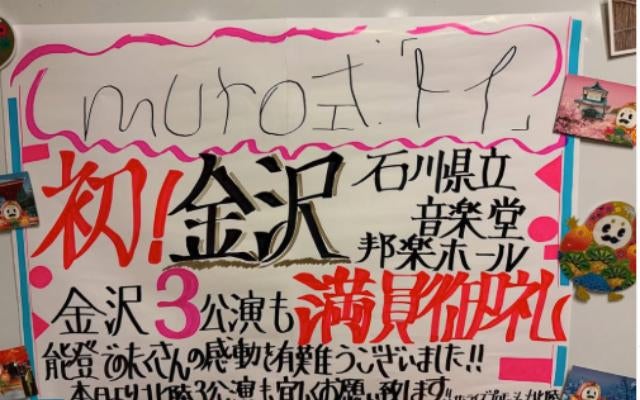 muro式.「トイ」
初!金沢
石川県立
音楽堂
邦楽ホール
金沢3公演も満員御礼
能登でのたくさんの感動を有難うございました!!
本日より北陸3公演も宜しくお願い致します!!